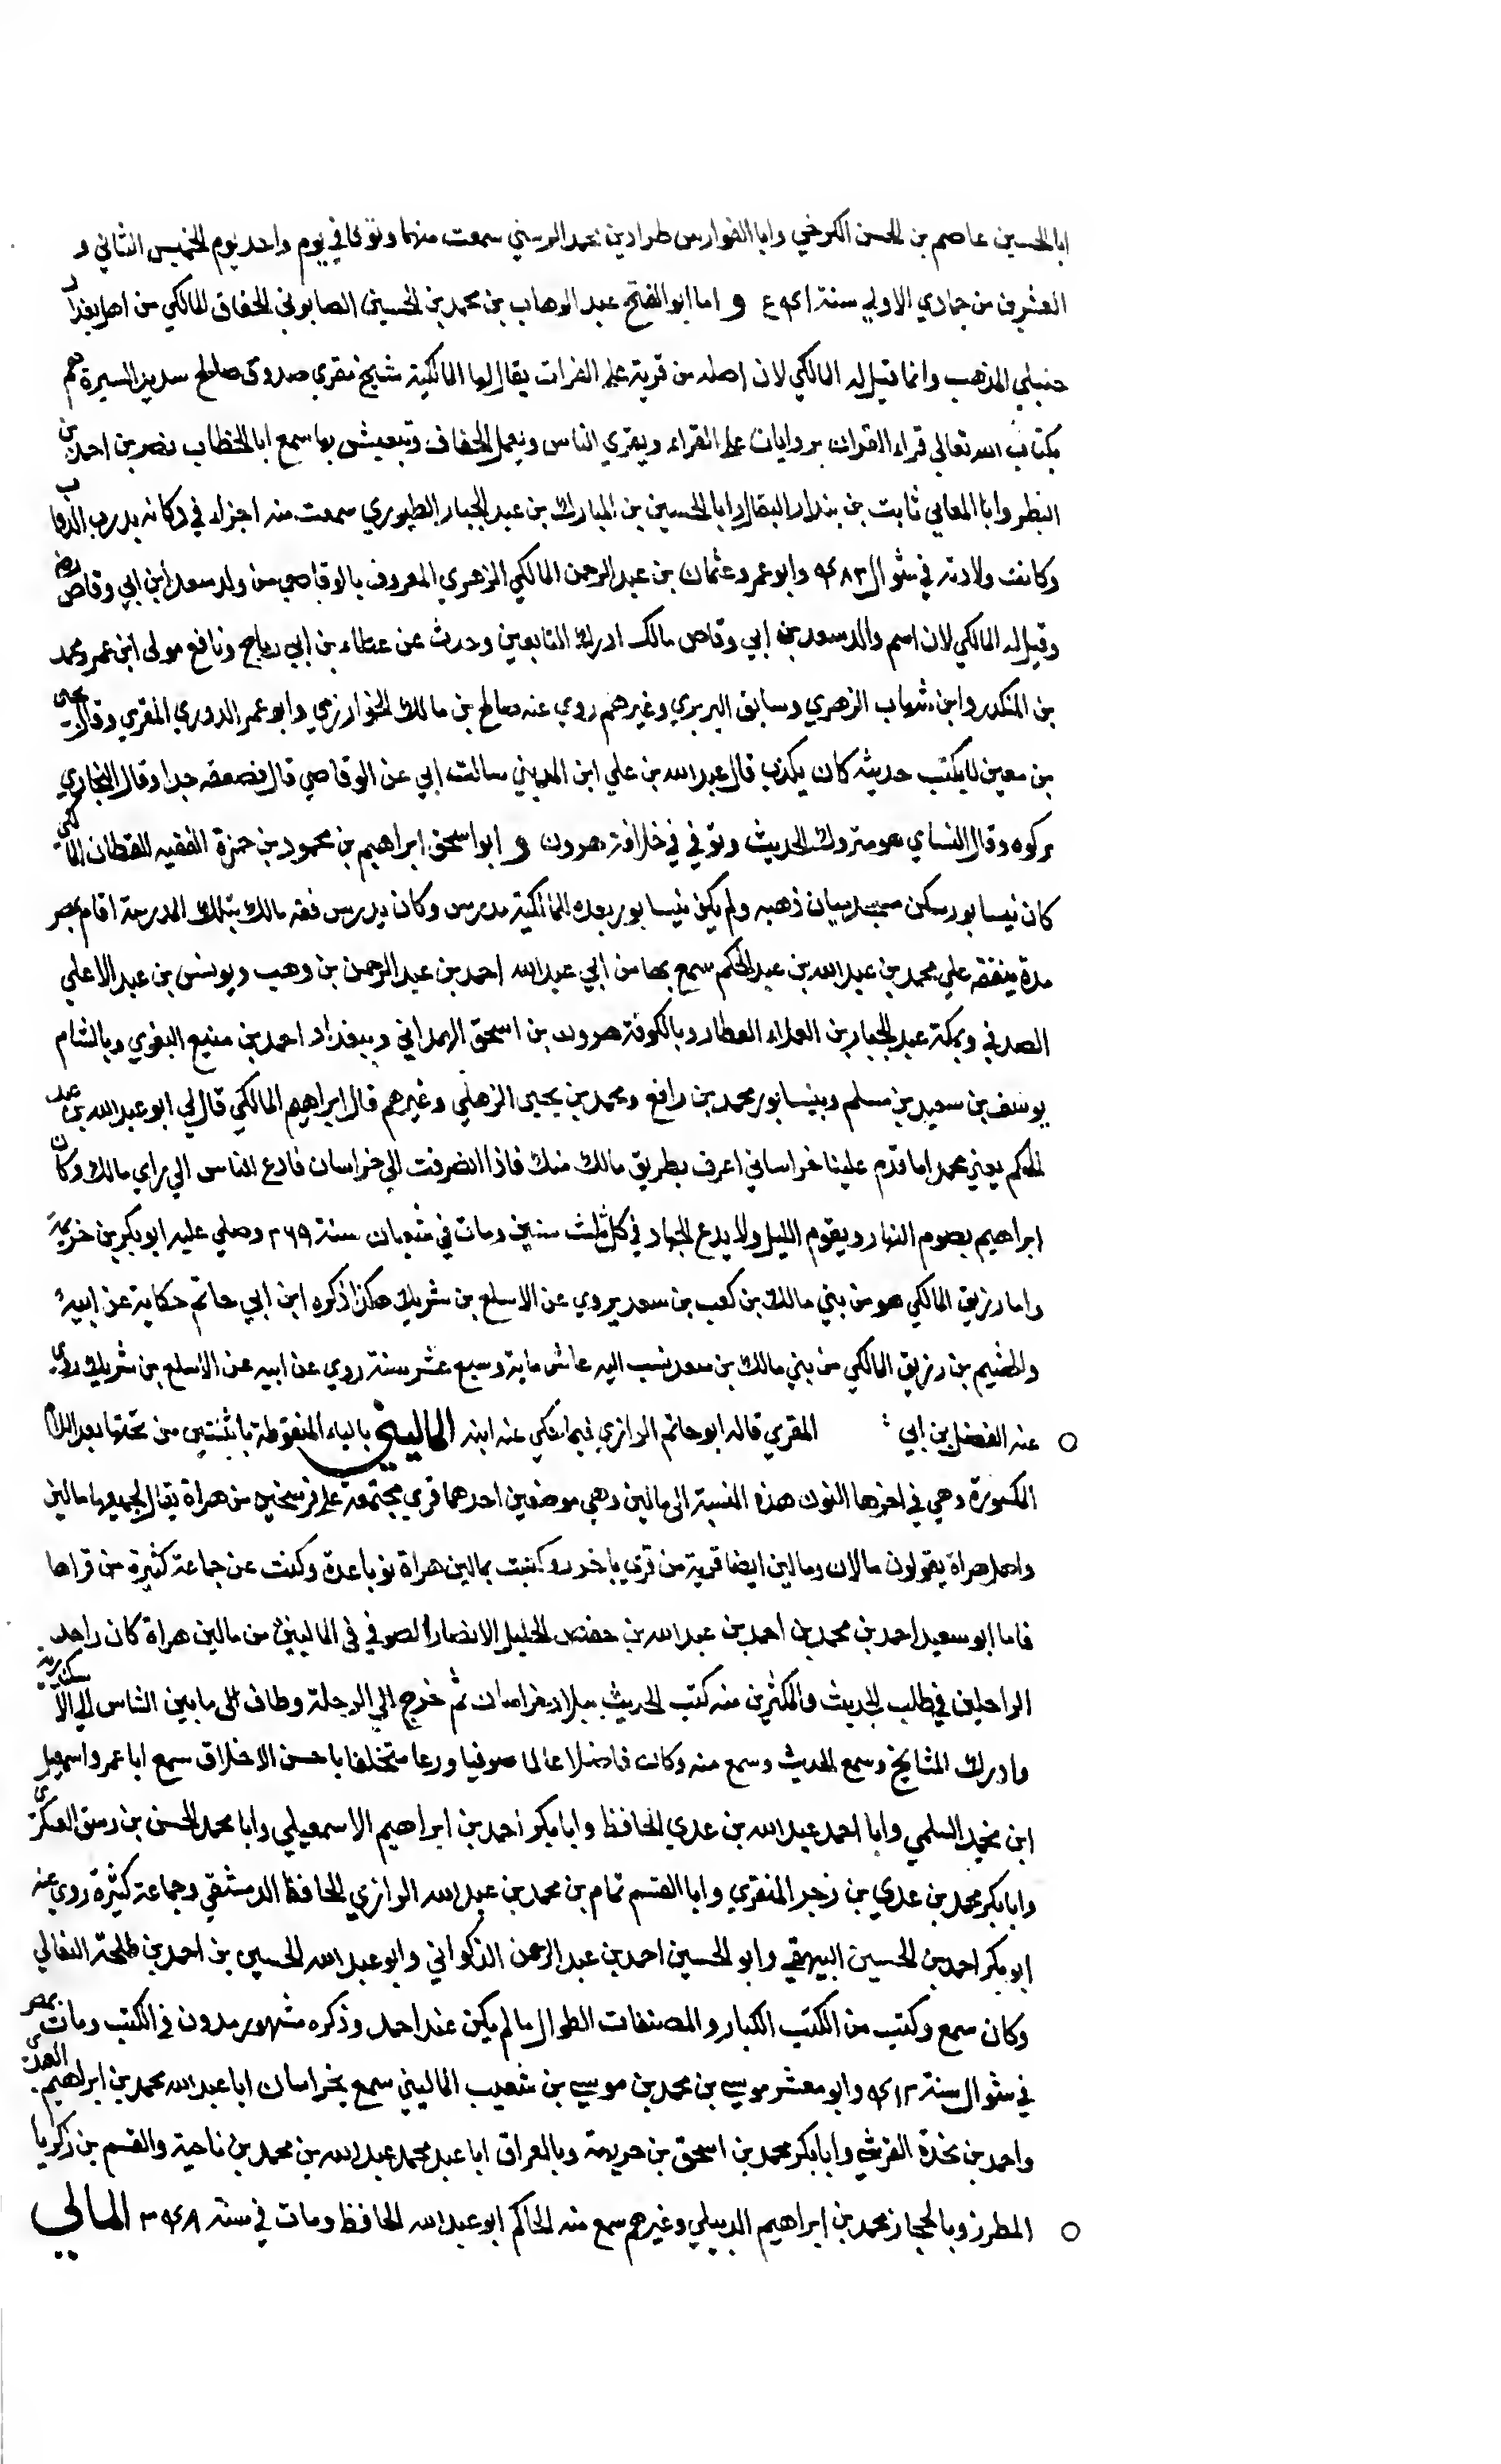 ابا الحسين عاصم بن الحسن الكرخي وابا الفوارس طراد بن محمد الزينبي سمعت منهما وتوفي في يوم واحد يوم الخميس الثاني و
العشرين من جمادي الاولي سنة ٤٩١ و اما ابو الفتح عبد الوهاب بن محمد بن الحسين الصابوني الخفاف المالكي من اهل بغداد
حنبلي المذهب وانما قيل له المالكي لان اصله من قرية علي الفرات يقال لها المالكية شيخ مقري صدوق صالح سديد السيرة قيم
بكتاب الله تعالي قراء القران بروايات علي القراء ويقري الناس ويعمل الخفاف وتتعيش بها سمع ابا الخطاب نصر بن احمد بن
البطر وابا المعالي ثابت بن بندار البقال وابا الحسين بن المبارك بن عبد الجبار الطيوري سمعت منه اجزاء في دكانه بدرب الدواب
وكانت ولادته في شوال ٤٨٣ وابو عمرو عثمان بن عبد الرحمن المالكي الزهري المعروف بالوقاصي من ولد سعد ابن ابي وقاص رضه
وقيل له المالكي لان اسم والد سعد بن ابي وقاص مالك ادرك التابعين وحدث عن عطاء بن ابي رباح ونافع مولي ابن عمر ومحمد
بن المنكدر وابن شهاب الزهري وسابق البربري وغيرهم روي عنه صالح بن مالك الخوارزمي وابو عمر الدوري المقري وقال يحيي
بن معين لا يكتب حديثه كان يكذب قال عبد الله بن علي ابن المديني سالت ابي عن الوقاصي قال فضعفه جدا وقال البخاري
تركوه وقال النساي هو متروك الحديث وتوفي في خلافة هرون و ابو اسحق ابراهيم بن محمود بن حمزة الفقيه القطان المالكي
كان نيسابور سكن مسجد بيان ذهبه ولم يكن بنيسابور بعده المالكية مدرس وكان يدرس فقه مالك بتلك المدرسة اقام بمصر
مدة يتفقه علي محمد بن عبد الله بن عبد الحكم سمع بها من ابي عبد الله احمد بن عبد الرحمن بن وهب ويونس بن عبد الاعلي
الصدفي وبمكة عبد الجبار بن العلاء العطار وبالكوفة هرون بن اسحق الهمداني وببغداد احمد بن منيع البغوي وبالشام
يوسف بن سعيد بن مسلم وبنيسابور محمد بن رافع ومحمد بن يحيي الذهلي وغيرهم قال ابراهيم المالكي قال لي ابو عبد الله بن عبد
الحكم يعني محمد اما قدم علينا خراساني اعرف بطريق مالك منك فاذا انصرفت الي خراسان فادع الناس الي راي مالك وكان
ابراهيم يصوم النهار ويقوم الليل ولا يدع الجهاد في كل ثلث سنين ومات في شعبان سنة ٢٩٩ وصلي عليه ابو بكر بن خزيمة
واما رزيق المالكي هو من بني مالك بن كعب بن سعد يروي عن الاسلع بن شريك هكذا ذكره ابن ابي حاتم حكاية عن ابيه
والهيثم بن رزيق المالكي من بني مالك بن سعد نسب اليه عاش ماية وسبع عشر سنة روي عن ابيه عن الاسلع بن شريك روي
عنه الفضل بن ابي المقري قاله ابو حاتم الرازي فيما حكي عنه ابنه الماليني بالياء المنقوطة باثنتين من تحتها بعد اللام
المكسورة وهي في اخرها النون هذه النسبة الي مالين وهي موضعين احدهما قري مجتمعة علي فرسخين من هراة يقال لجميعها مالين
واهل هراة يقولون مالان ومالين ايضا قرية من قري باخرز وكتبت بمالين هراة نوبا عدة وكتبت عن جماعة كثيرة من قراها
فاما ابو سعيد احمد بن محمد بن احمد بن عبد الله بن حفص الخليل الانصار الصوفي في الماليني من مالين هراة كان راحد
الراحلين في طلب الحديث والمكثرين منه كتب الحديث ببلاد خراسان ثم خرج الي الرحلة وطاف الي ما بين الشاس الي الاسكندرية
وادرك المشايخ وسمع الحديث وسمع منه وكان فاضلا عالما صوفيا ورعا متخلقا باحسن الاخلاق سمع ابا عمرو اسمعيل
ابن نجيد السلمي وابا احمد عبد الله بن عدي الحافظ وابا بكر احمد بن ابراهيم الاسمعيلي وابا محمد الحسن بن رستق العسكري
وابا بكر محمد بن عدي بن زحر المنقري وابا القسم تمام بن محمد بن عبد الله الرازي الحافظ الدمشقي وجماعة كثيرة روي عنه
ابو بكر احمد بن الحسين البيهقي وابو الحسين احمد بن عبد الرحمن الذكواني وابو عبد الله الحسين بن احمد بن طلحة النعالي
وكان سمع وكتب من الكتب الكبار والمصنفات الطوال ما لم يكن عند احد وذكره مشهور مدون في الكتب ومات بمصر
في شوال سنة ٤١٢ وابو معشر موسي بن محمد بن موسي بن شعيب الماليني سمع بخراسان ابا عبد الله محمد بن ابراهيم العبدي
واحمد بن نجدة القرشي وابا بكر محمد بن اسحق بن خزيمة وبالعراق ابا عبد محمد عبد الله بن محمد بن ناجية والقسم بن زكريا
المطرز وبالحجاز محمد بن ابراهيم الديبلي وغيرهم سمع منه الحاكم ابو عبد الله الحافظ ومات في سنة ٣٤٨ المالي